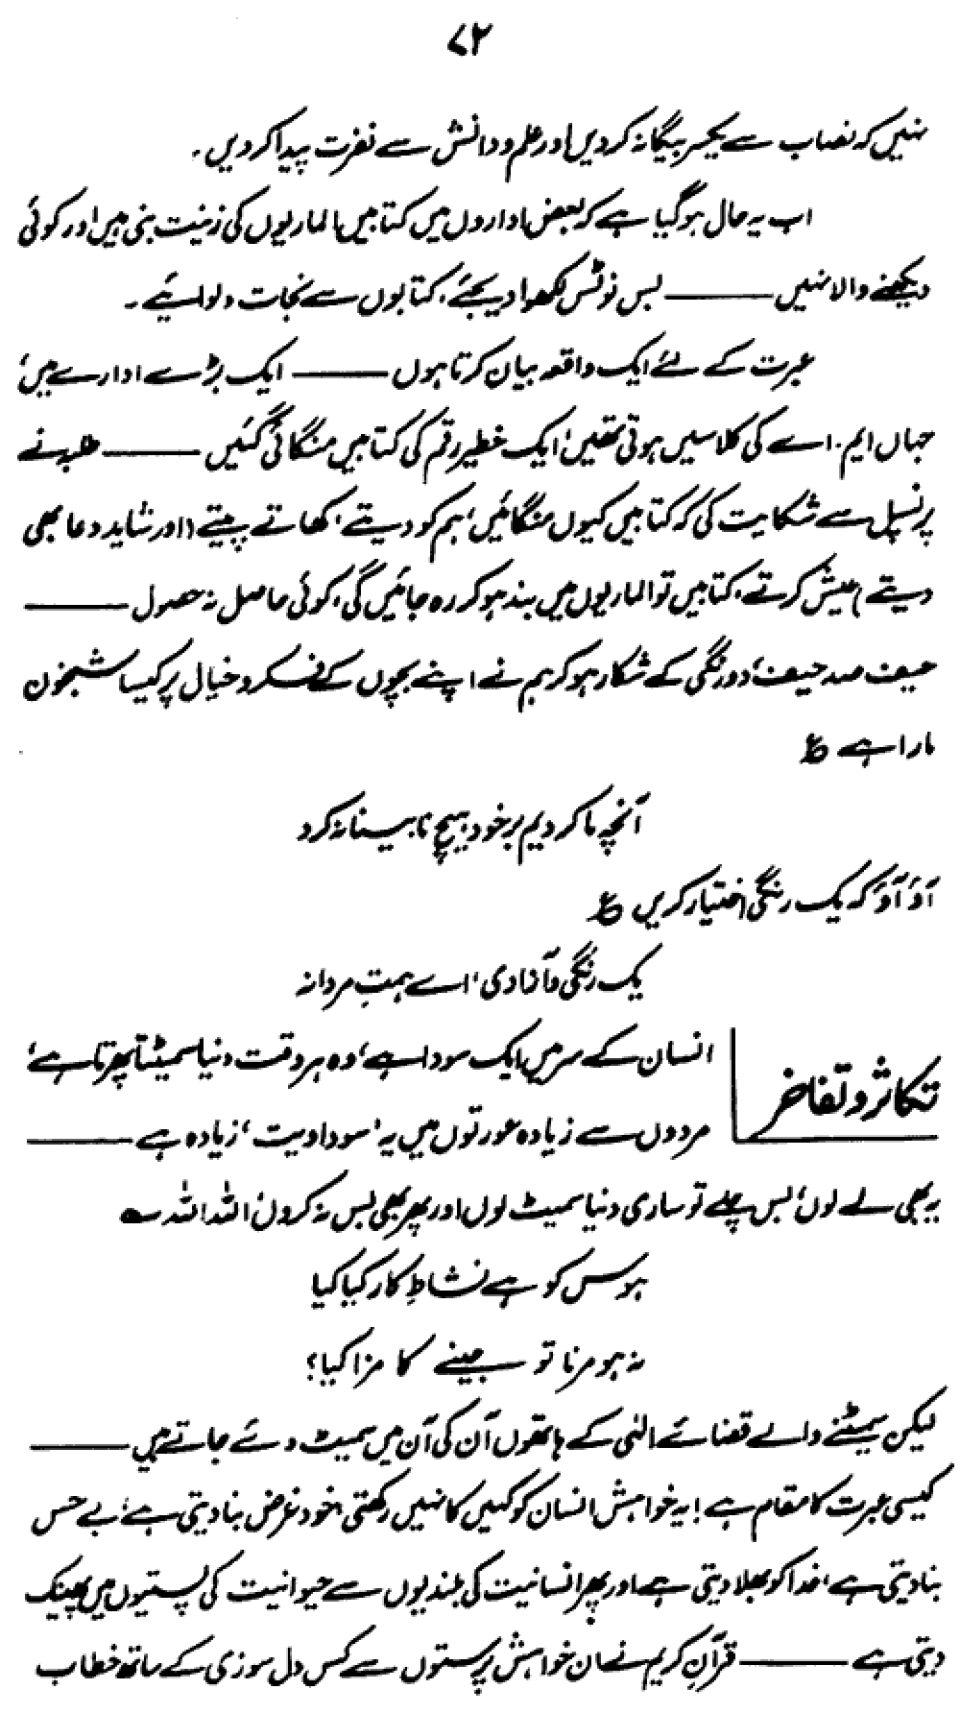 ۷۲
نہیں کہ نصاب سے یکسر بیگانہ کر دیں اور علم و دانش سے نفرت پیدا کر دیں۔
اب یہ حال ہوگیا ہے کہ بعض اداروں میں کتابیں الماریوں کی زینت بنی ہیں اور کوئی
دیکھنے والا نہیں ——— بس نوٹس لکھوا دیجئے، کتابوں سے نجات دلوائیے۔
عبرت کے لئے ایک واقعہ بیان کرتا ہوں ——— ایک بڑے ادارے میں،
جہاں ایم۔اے کی کلاسیں ہوتی تھیں، ایک خطیر رقم کی کتابیں منگائی گئیں ——— طلبہ نے
پرنسپل سے شکایت کی کہ کتابیں کیوں منگائیں، ہم کو دیتے، کھاتے پیتے (اور شاید دعا بھی
دیتے) عیش کرتے، کتابیں تو الماریوں میں بند ہو کر رہ جائیں گی، کوئی حاصل نہ حصول ———
حیف صد حیف، دورنگی کے شکار ہو کر ہم نے اپنے بچوں کے فکر و خیال پر کیسا شبخون
مارا ہے ؏
آنچہ ما کردیم بر خود ہیچ نابینا نہ کرد
آؤ آؤ کہ یک رنگی اختیار کریں ؏
یک رنگی و آزادی، اے ہمتِ مردانہ
تکاثر و تفاخر
انسان کے سر میں ایک سودا ہے، وہ ہر وقت دنیا سمیٹتا پھرتا ہے،
مردوں سے زیادہ عورتوں میں یہ 'سوداویت' زیادہ ہے ———
یہ بھی لے لوں، بس چلے تو ساری دنیا سمیٹ لوں اور پھر بھی بس نہ کروں، اللہ اللہ ؎
ہوس کو ہے نشاطِ کار کیا کیا
نہ ہو مرنا تو جینے کا مزا کیا؟
لیکن سمیٹنے والے قضائے الٰہی کے ہاتھوں آن کی آن میں سمیٹ دئے جاتے ہیں ———
کیسی عبرت کا مقام ہے! یہ خواہش انسان کو کہیں کا نہیں رکھتی، خود غرض بنا دیتی ہے، بے حس
بنا دیتی ہے، خدا کو بھلا دیتی ہے اور پھر انسانیت کی بلندیوں سے حیوانیت کی پستیوں میں پھینک
دیتی ہے ——— قرآنِ کریم نے ان خواہش پرستوں سے کس دل سوزی کے ساتھ خطاب